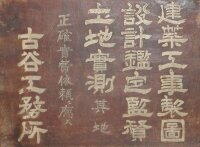 建築工事製圖
設計鑑定監督
土地實測其他
正確實費依頼應ス
古谷工務所